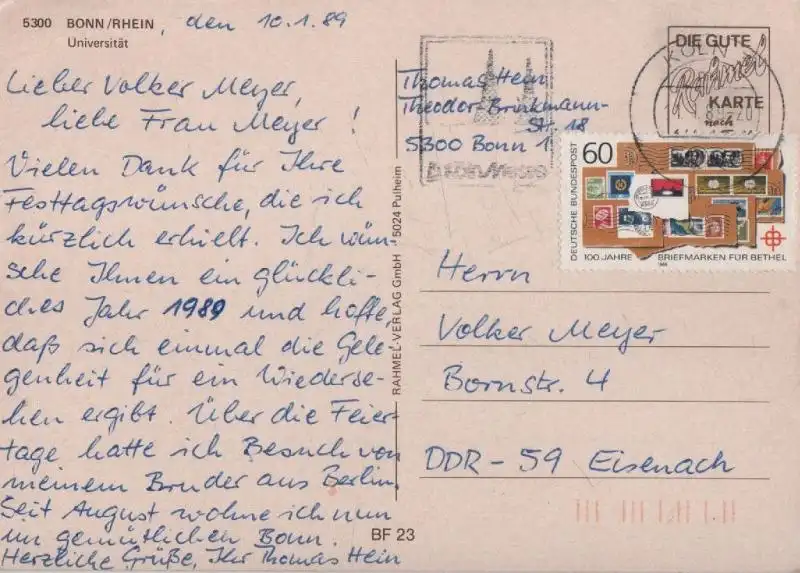 5300 BONN/RHEIN, den 10.1.89
Universität
Lieber Volker Meyer,
liebe Frau Meyer!
Vielen Dank für Ihre
Festtagswünsche, die ich
kürzlich erhielt. Ich wün-
sche Ihnen ein glückli-
ches Jahr 1989 und hoffe,
daß sich einmal die Gele-
genheit für ein Wiederse-
hen ergibt. Über die Feier-
tage hatte ich Besuch von
meinem Bruder aus Berlin.
Seit August wohne ich nun
im gemütlichen Bonn.
Herzliche Grüße, Ihr Thomas Hein
RAHMEL-VERLAG GmbH 5024 Pulheim
BF 23
Thomas Hein
Theodor-Brinkmann-
Str. 18
5300 Bonn 1
DIE GUTE
Rahmel
KARTE
nach
KÖLN
60
DEUTSCHE BUNDESPOST
100 JAHRE BRIEFMARKEN FÜR BETHEL
1988
Herrn
Volker Meyer
Bornstr. 4
DDR-59 Eisenach